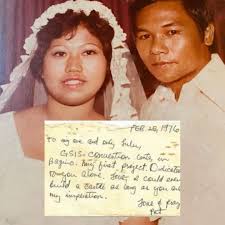 FEB. 28, 1976
To my one and only
GSIS - Convention Center, in
Baguio. My first project. Dedicated
to you alone. I could even
build a castle as long as you are
my inspiration.
Pat